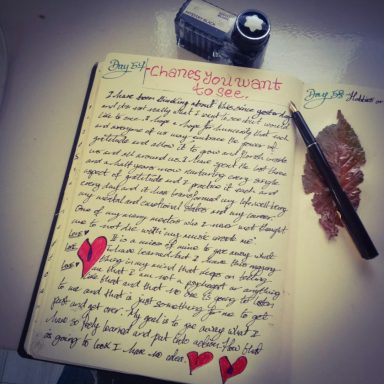 Day 57 - Chanes you want
to see.
Day 58 Hobbies
I have been thinking about this since yesterday
and its not really what I want to see but I would
like to see. I hope & hope for humanity that each
and everyone of us may embrace the power of
gratitude and allow it to grow and flourish inside
us and all around us. I have spent the last three
and a half years now nurturing every single
aspect of gratitude and I practice it each and
every day and it has transformed my life, well-being
my mental and emotional states and my career.
One of my many mentors who I now most thought
me to not die with my music inside me.
Love It is a miss of mine to give away what
Love have learned but I have this nagging
Love thing in my mind that keeps on telling
me that I am not a psychiatrist or anything
like that and that no one is going to listen
to me and that is just something for me to get
past and get over. My goal is to give away what I
have so freely learned and put into action. How that
is going to look I have no idea.